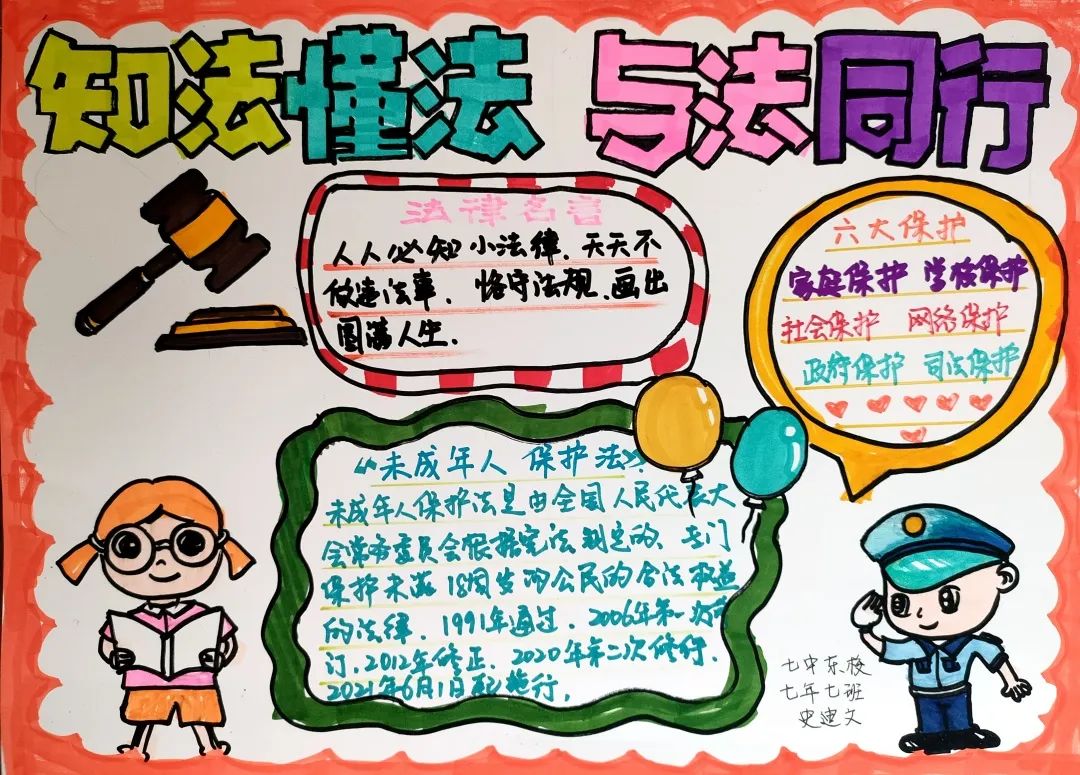 知法懂法 与法同行
法律名言
人人必知小法律，天天不
做违法事，恪守法规，画出
圆满人生.
六大保护
家庭保护 学校保护
社会保护 网络保护
政府保护 司法保护
《未成年人保护法》
未成年人保护法是由全国人民代表大
会常务委员会根据宪法制定的、专门
保护未满18周岁的公民的合法权益
的法律．1991年通过．2006年第一次修
订．2012年修正．2020年第二次修行．
2021年6月1日起施行．
七中东校
七年七班
史迪文